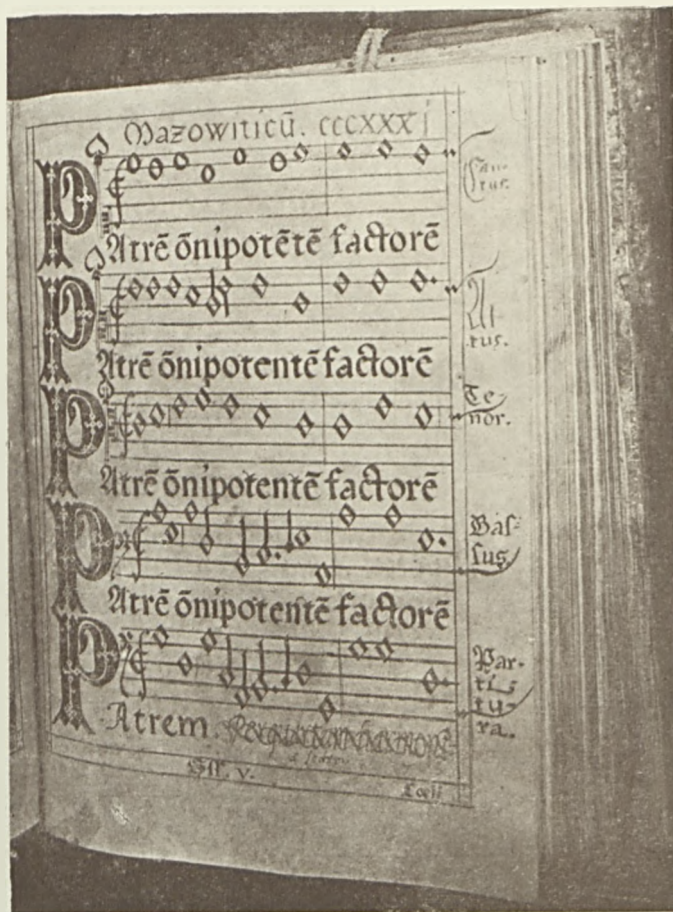 Mazowiticũ. cccxxxj
Can-
tus.
PAtrẽ õnipotẽtẽ factorẽ
Al
tus.
PAtrẽ õnipotentẽ factorẽ
Te-
nor.
PAtrẽ õnipotentẽ factorẽ
Bas-
sus
PAtrẽ õnipotentẽ factorẽ
Par-
ti-
tu-
ra.
PAtrem.
Cœli